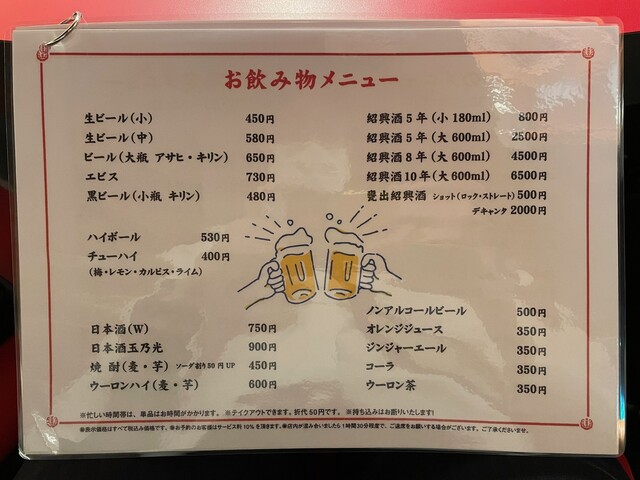 お飲み物メニュー
生ビール(小) 450円
生ビール(中) 580円
ビール(大瓶 アサヒ・キリン) 650円
エビス 730円
黒ビール(小瓶 キリン) 480円
ハイボール 530円
チューハイ 400円
(梅・レモン・カルピス・ライム)
日本酒(W) 750円
日本酒玉乃光 900円
焼酎(麦・芋) ソーダ割り50円UP 450円
ウーロンハイ(麦・芋) 600円
紹興酒5年(小 180ml) 800円
紹興酒5年(大 600ml) 2500円
紹興酒8年(大 600ml) 4500円
紹興酒10年(大 600ml) 6500円
甕出紹興酒 ショット(ロック・ストレート) 500円
デキャンタ 2000円
ノンアルコールビール 500円
オレンジジュース 350円
ジンジャーエール 350円
コーラ 350円
ウーロン茶 350円
※忙しい時間帯は、単品はお時間がかかります。 ※テイクアウトできます。折代50円です。 ※持ち込みはお断りいたします!
※表示価格はすべて税込み価格です。※お予約のお客様はサービス料10%を頂きます。※店内が混み合いましたら1時間30分程度で、ご退席をお願いする場合がございます。ご了承くださいませ。